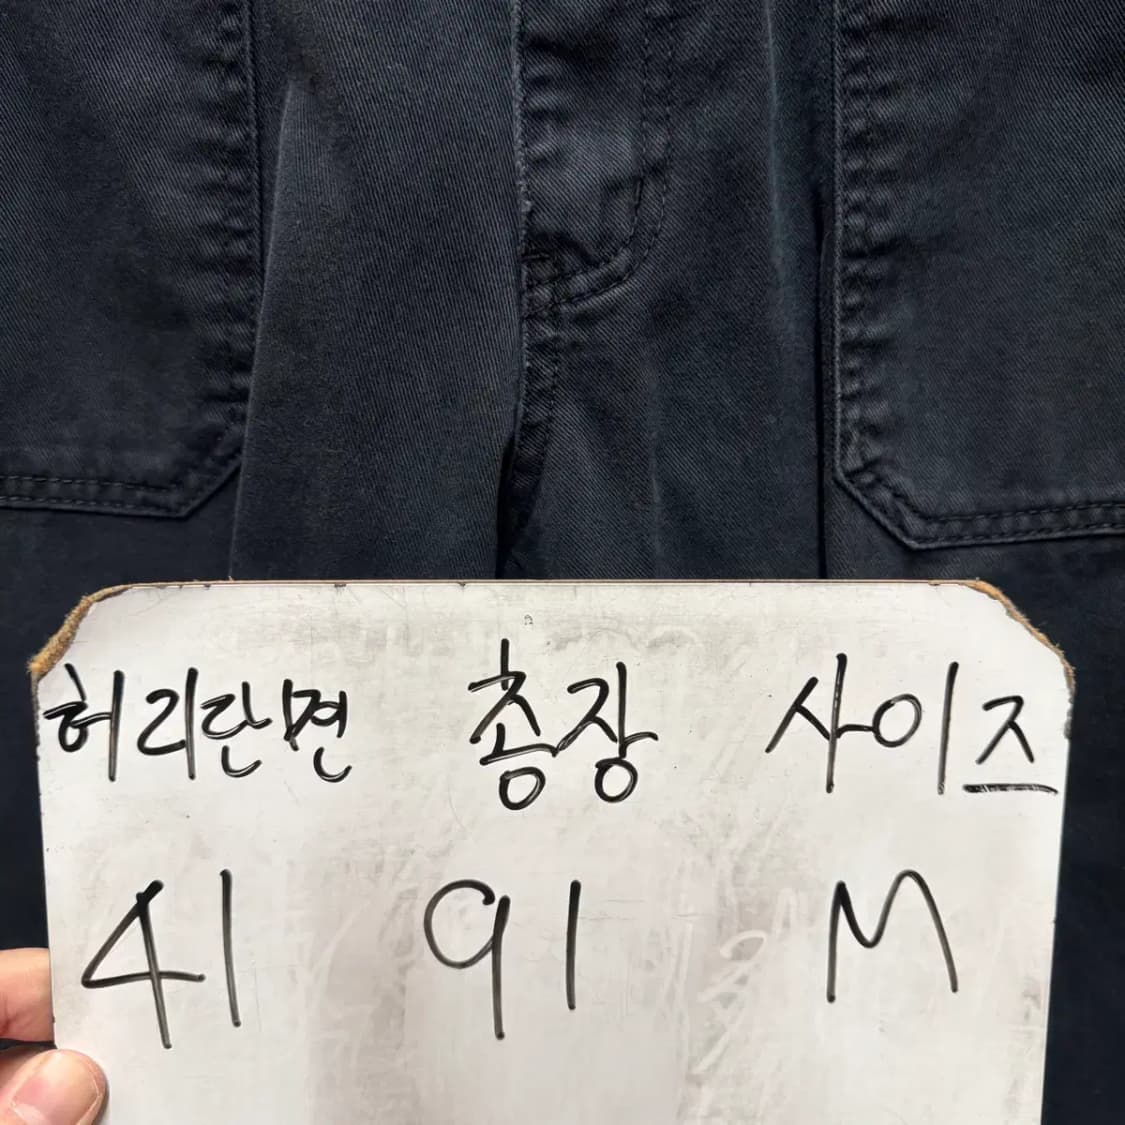 허리단면 총장 사이즈
41 91 M